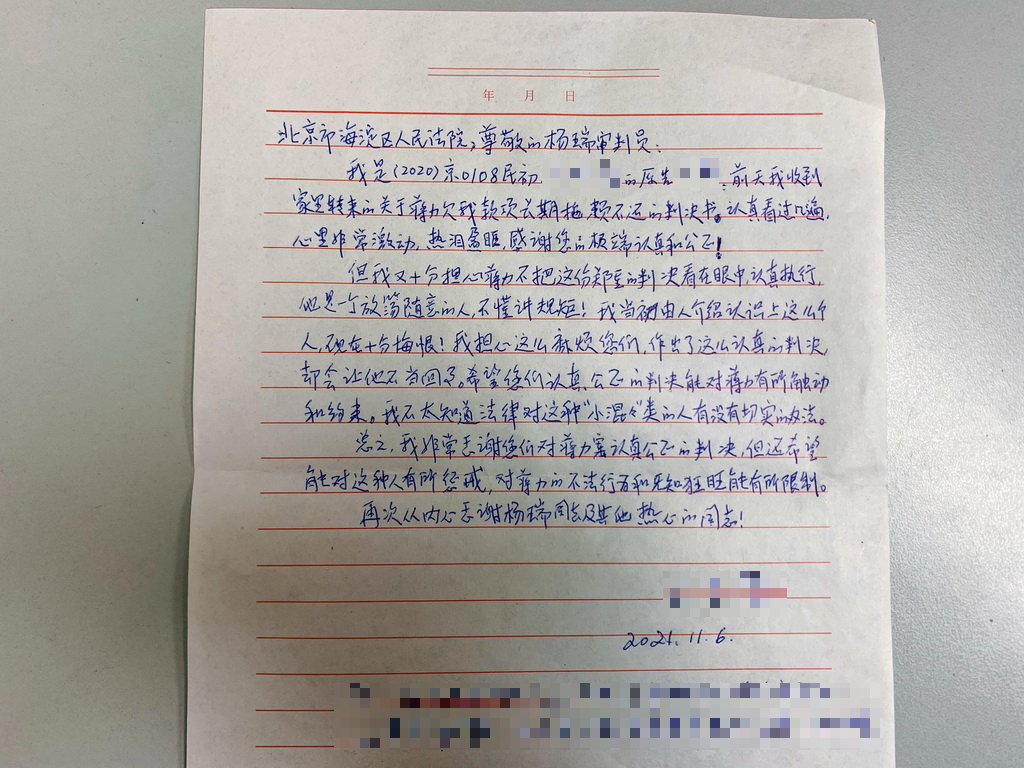 年 月 日
北京市海淀区人民法院,尊敬的杨瑞审判员:
我是(2020)京0108民初 的原告 ,前天我收到
家里转来的关于蒋力欠我款项长期拖赖不还的判决书。认真看过几遍,
心里非常激动,热泪盈眶,感谢您的极端认真和公正!
但我又十分担心蒋力不把这份郑重的判决看在眼中,认真执行,
他是一个放荡随意的人,不懂讲规矩!我当初由人介绍认识上这么个
人,现在十分悔恨!我担心这么麻烦您们,作出了这么认真的判决,
却会让他不当回事。希望您们认真、公正的判决能对蒋力有所触动
和约束。我不太知道法律对这种“小混混”类的人有没有切实的办法。
总之,我非常感谢您们对蒋力案认真公正的判决,但还希望
能对这种人有所惩戒,对蒋力的不法行为和无知狂妄能有所限制。
再次从内心感谢杨瑞同志及其他热心的同志!
2021.11.6.